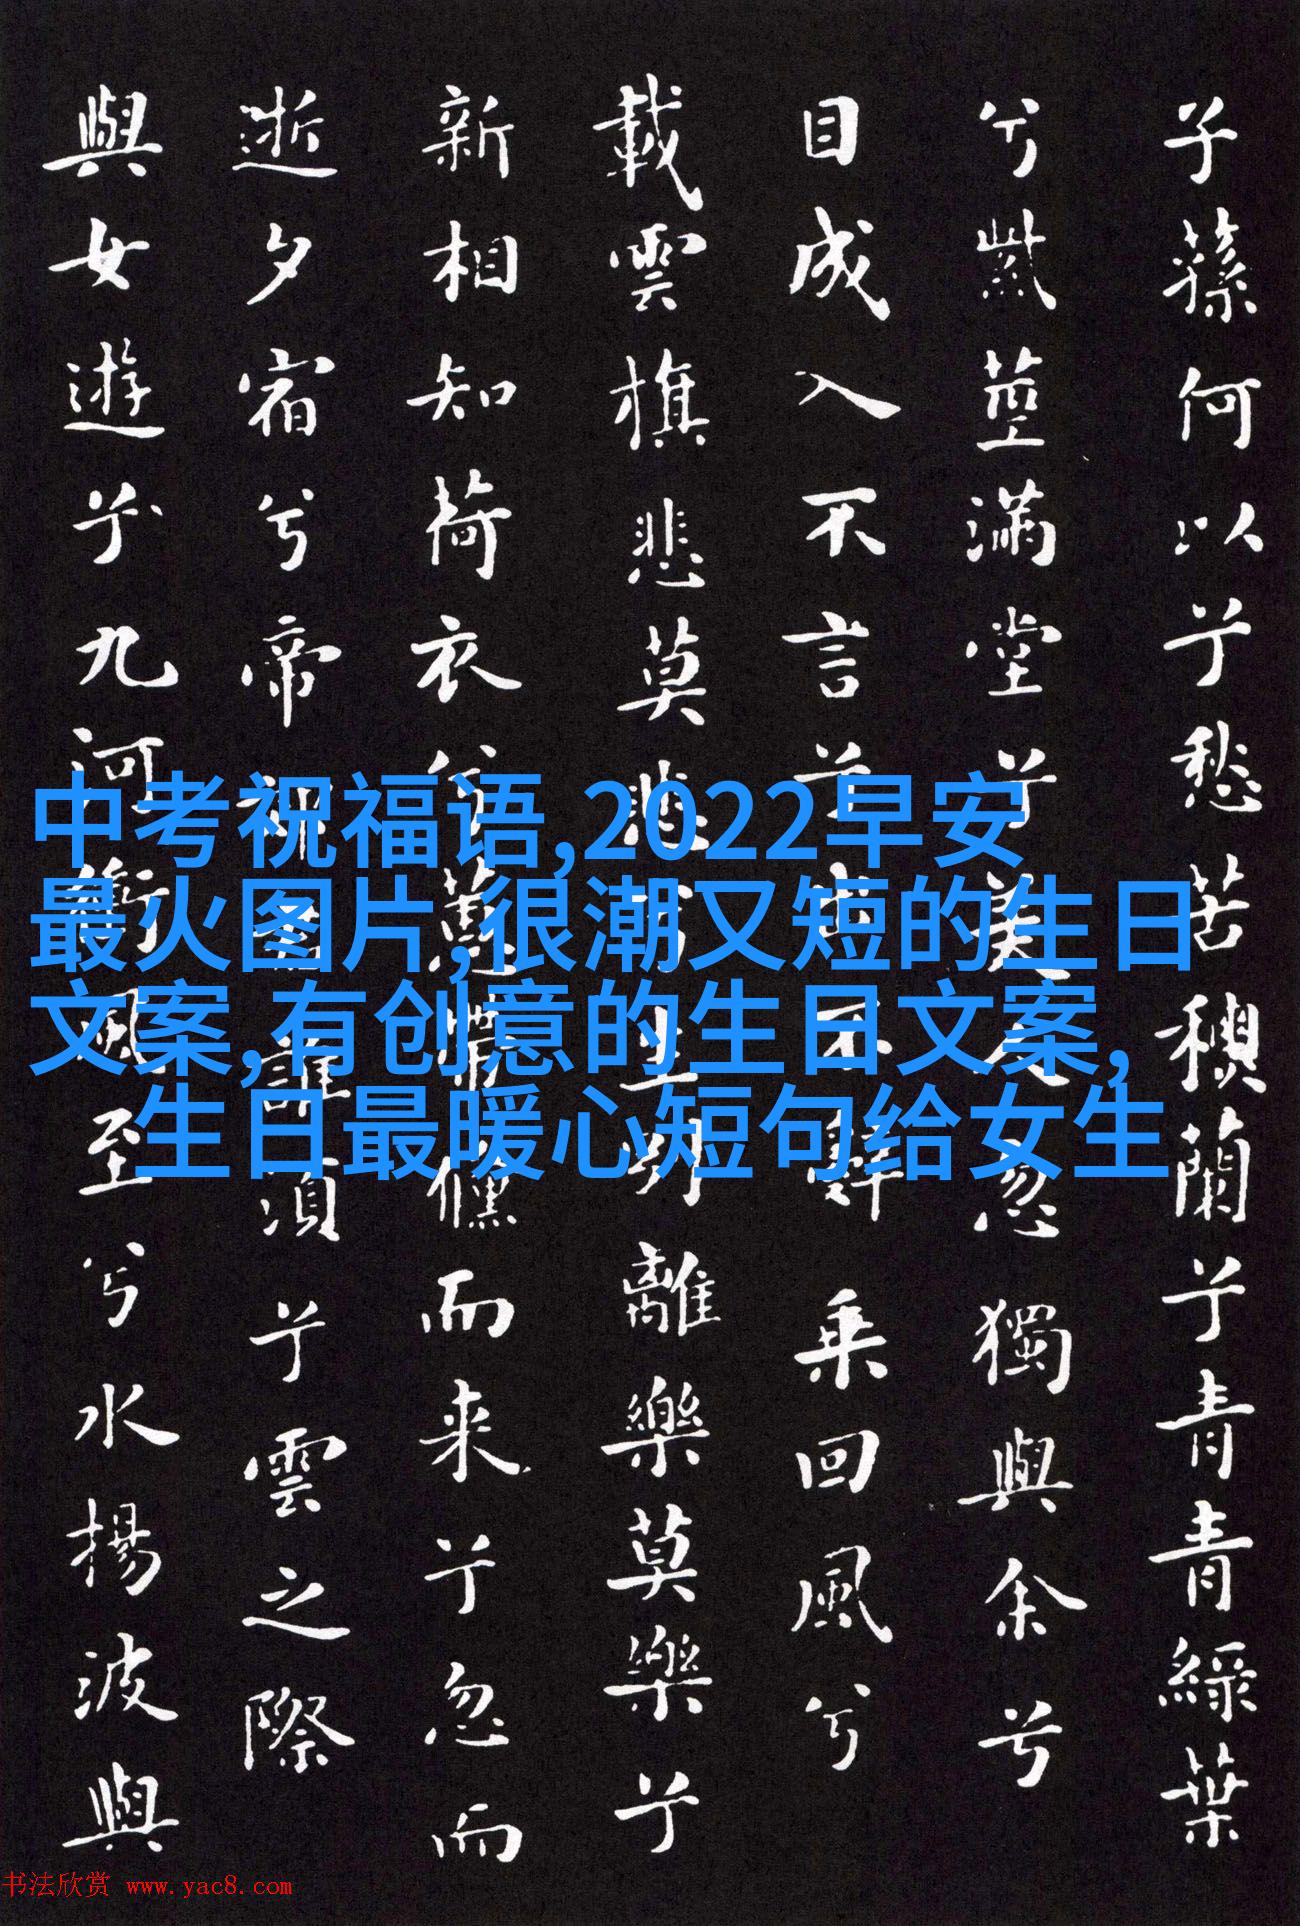 子蓀何以兮愁苦蘭兮青青綠葉
兮紫莖滿堂兮美人忽獨與余兮
目成入不言兮出不辭乘回風兮
載雲旗悲莫悲兮生別離樂莫樂兮
新相知荷衣兮蕙帶儵而来兮忽而
逝夕宿兮帝郊誰須兮雲之際
與女遊兮九河衝風至兮水揚波與
中考祝福语,2022早安
最火图片,很潮又短的生日
文案,有创意的生日文案,
生日最暖心短句给女生
书法欣赏 www.yac8.com